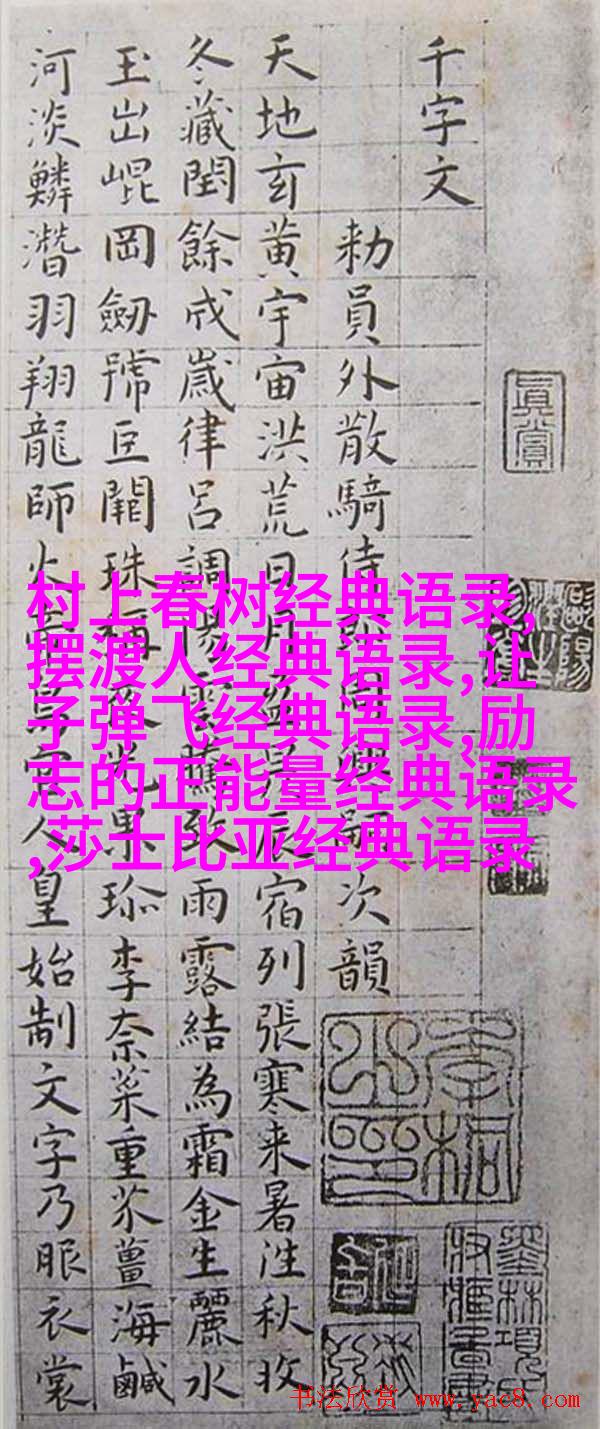 千字文
勑員外散騎侍郎周興嗣次韻
天地玄黄宇宙洪荒日月盈昃辰宿列張寒来暑往秋收
冬藏閏餘成歲律呂調陽雲騰致雨露結為霜金生麗水
玉出崐岡劒號巨闕珠稱夜光果珎李柰菜重芥薑海鹹
河淡鱗潛羽翔龍師火帝鳥官人皇始制文字乃服衣裳
真賞
村上春树经典语录,
摆渡人经典语录,让
子弹飞经典语录,励
志的正能量经典语录
,莎士比亚经典语录
书法欣赏 www.yac8.com